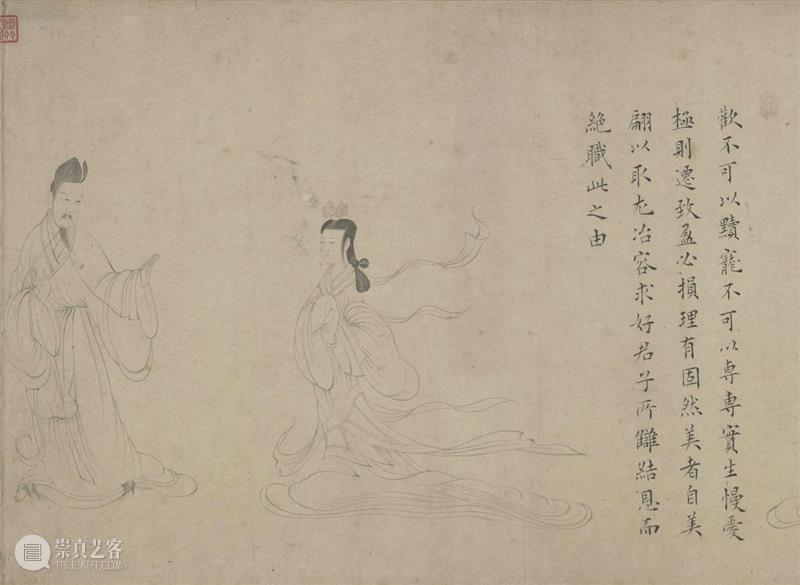 歡不可以黷寵不可以専専實生慢愛
極則遷致盈必損理有固然美者自美
翩以取尤冶容求好君子所讎結恩而
絶職此之由
崇真艺客